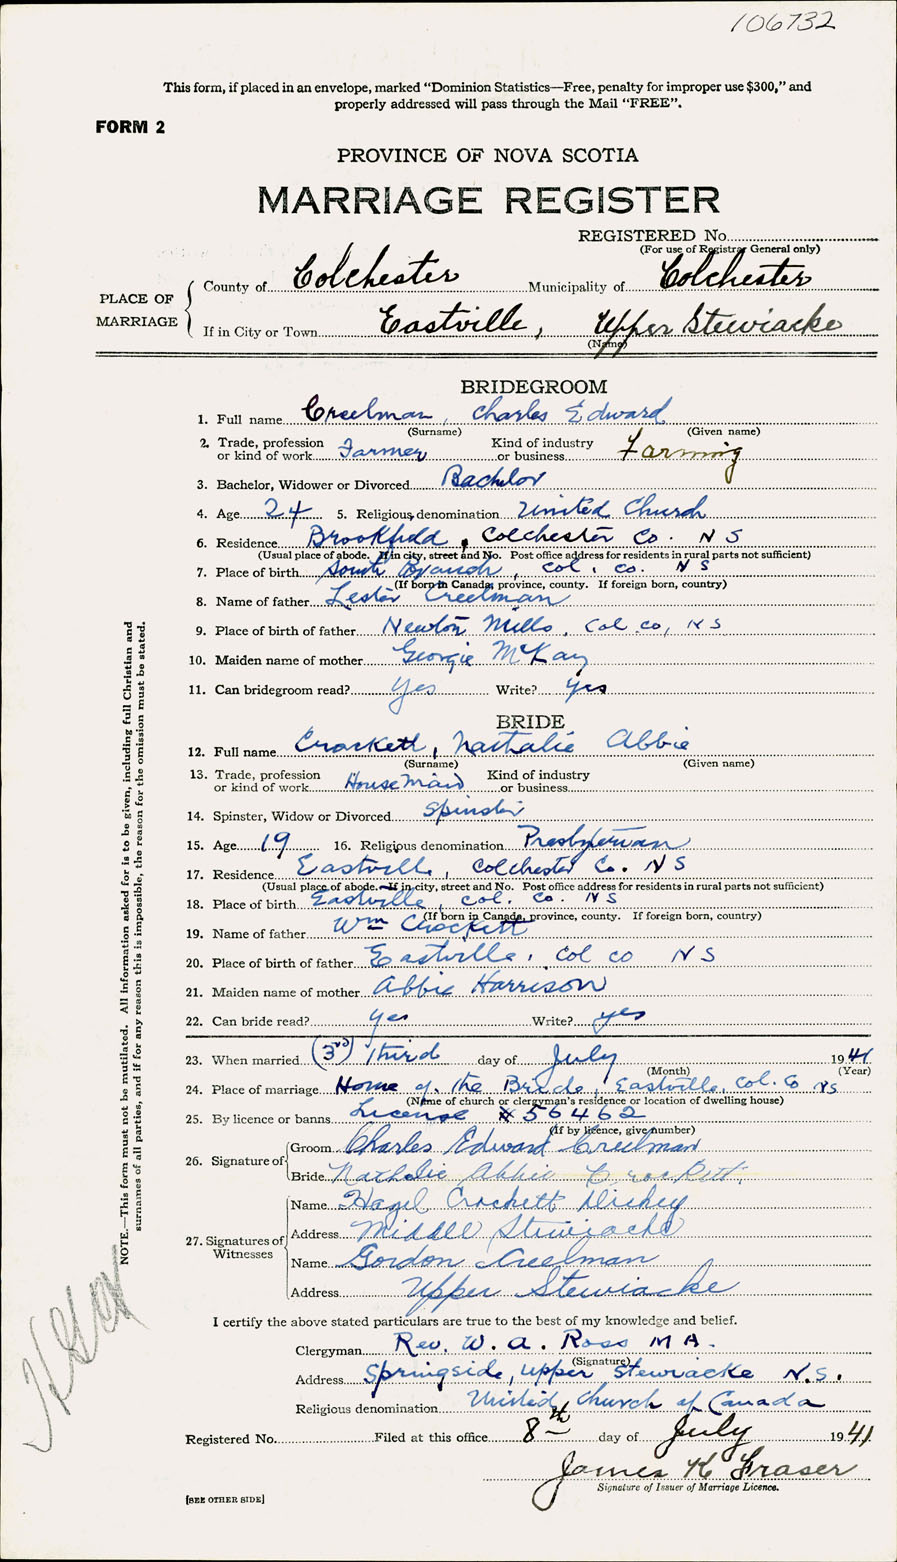 106732
This form, if placed in an envelope, marked "Dominion Statistics—Free, penalty for improper use $300," and
properly addressed will pass through the Mail "FREE".
FORM 2
PROVINCE OF NOVA SCOTIA
MARRIAGE REGISTER
REGISTERED No.
(For use of Registrar General only)
PLACE OF MARRIAGE
County of Colchester Municipality of Colchester
If in City or Town Eastville, Upper Stewiacke
(Name)
BRIDEGROOM
1. Full name Creelman, Charles Edward
(Surname) (Given name)
2. Trade, profession or kind of work Farmer Kind of industry or business Farming
3. Bachelor, Widower or Divorced Bachelor
4. Age 24 5. Religious denomination United Church
6. Residence Brookfield, Colchester Co. N S
(Usual place of abode. If in city, street and No. Post office address for residents in rural parts not sufficient)
7. Place of birth South Branch, Col. Co. N S
(If born in Canada, province, county. If foreign born, country)
8. Name of father Lester Creelman
9. Place of birth of father Newton Mills, Col. Co, N S
10. Maiden name of mother Georgie McKay
11. Can bridegroom read? Yes Write? Yes
BRIDE
12. Full name Crockett, Nathalie Abbie
(Surname) (Given name)
13. Trade, profession or kind of work House Maid Kind of industry or business
14. Spinster, Widow or Divorced Spinster
15. Age 19 16. Religious denomination Presbyterian
17. Residence Eastville, Colchester Co. N S
(Usual place of abode. If in city, street and No. Post office address for residents in rural parts not sufficient)
18. Place of birth Eastville, Col. Co. N S
(If born in Canada, province, county. If foreign born, country)
19. Name of father Wm Crockett
20. Place of birth of father Eastville, Col Co N S
21. Maiden name of mother Abbie Harrison
22. Can bride read? yes Write? yes
23. When married (3rd) Third day of July 1941
(Month) (Year)
24. Place of marriage Home of the Bride, Eastville, Col. Co NS
(Name of church or clergyman's residence or location of dwelling house)
25. By licence or banns License # 56462
(If by licence, give number)
26. Signature of Groom Charles Edward Creelman
Bride Nathalie Abbie Crockett.
27. Signatures of Witnesses
Name Hazel Crockett Dickey
Address Middle Stewiacke
Name Gordon Creelman
Address Upper Stewiacke
I certify the above stated particulars are true to the best of my knowledge and belief.
Clergyman Rev. W. A. Ross M A.
(Signature)
Address Springside, Upper Stewiacke N.S.
Religious denomination United Church of Canada
Registered No. Filed at this office 8th day of July 1941
James K Fraser
Signature of Issuer of Marriage Licence.
[SEE OTHER SIDE]
NOTE.—This form must not be mutilated. All information asked for is to be given, including full Christian and
surnames of all parties, and if for any reason this is impossible, the reason for the omission must be stated.